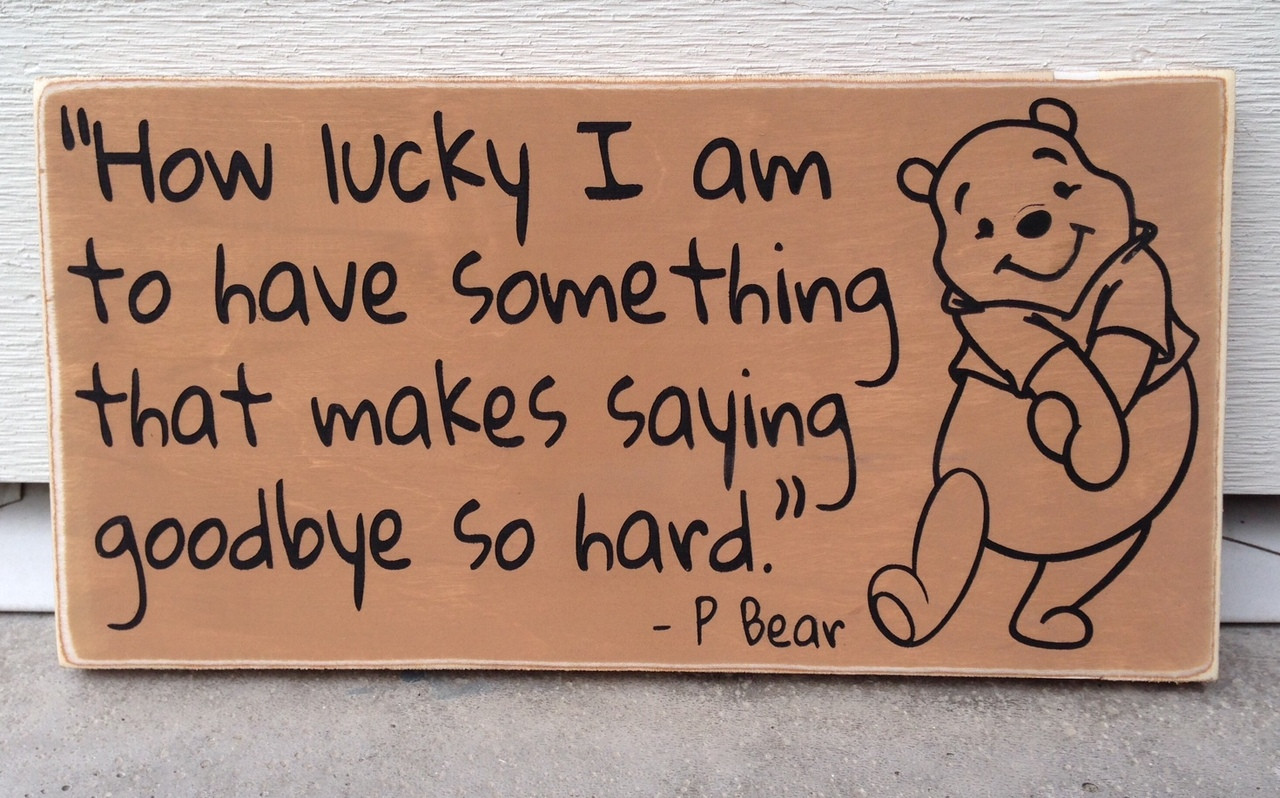 "How lucky I am
to have something
that makes saying
goodbye so hard."
- P Bear